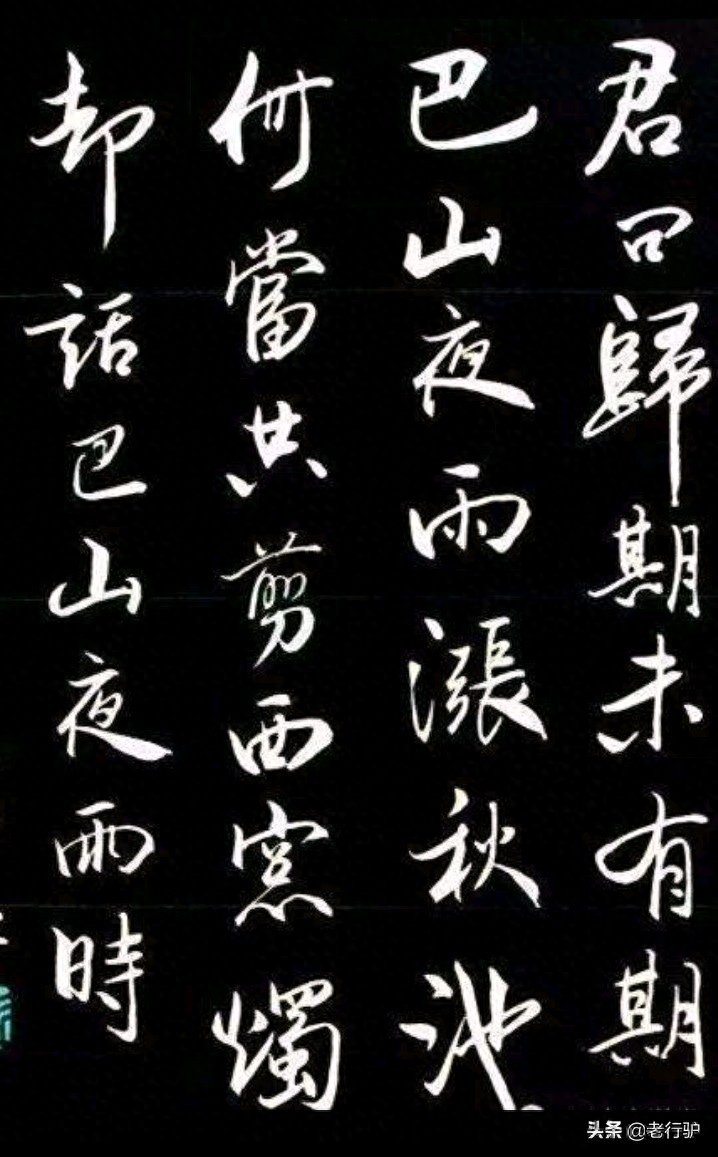 君問歸期未有期
巴山夜雨漲秋池
何當共剪西窓燭
却話巴山夜雨時
头条 @老行驴